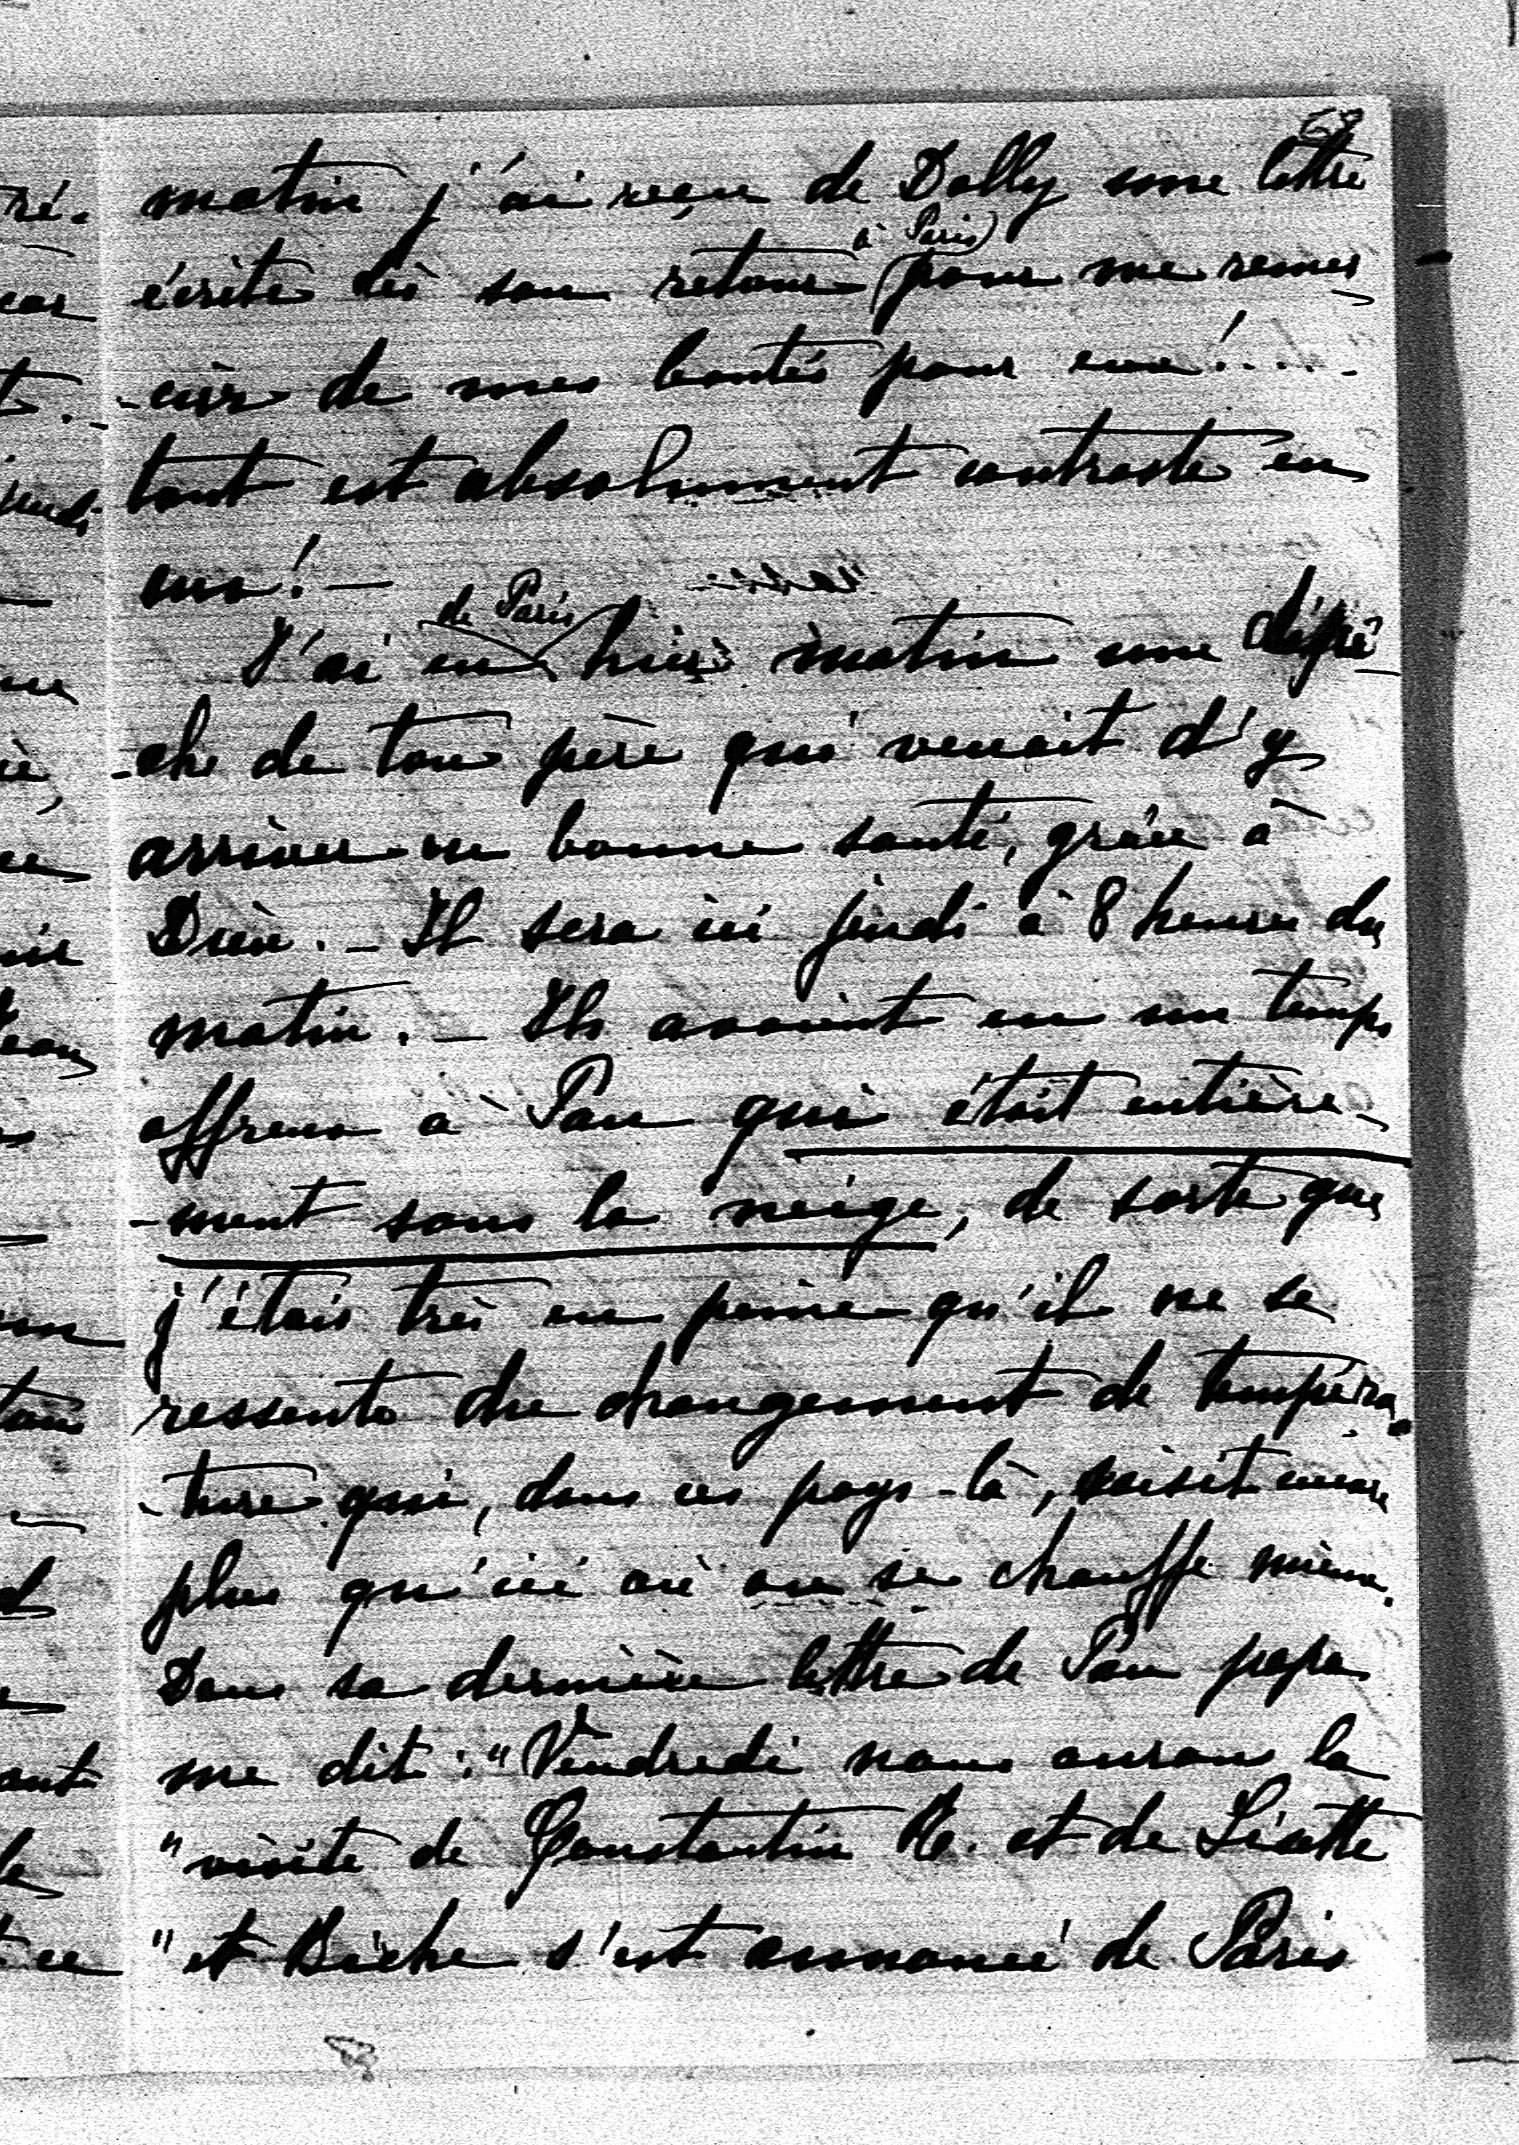 68
matin j'ai reçu de Dolly une lettre
écrite dès son retour à Paris pour me remer
-cier de mes bontés pour eux!....
tout est absolument contraste en
eux! —
J'ai eu de Paris hier matin une dépê
-che de ton père qui venait d'y
arriver en bonne santé, grâce à
Dieu. — Il sera ici jeudi à 8 heures du
matin. — Ils avaient eu un temps
affreux à Pau qui était entière-
-ment sous la neige, de sorte que
j'étais très en peine qu'il ne se
ressente du changement de tempéra-
-ture qui, dans ces pays-là, saisit encore
plus qu'ici où on se chauffe mieux.
Dans sa dernière lettre de Pau papa
me dit: "Vendredi nous aurons la
"visite de Constantin R. et de Lisette
"et Bèche s'est annoncé de Paris